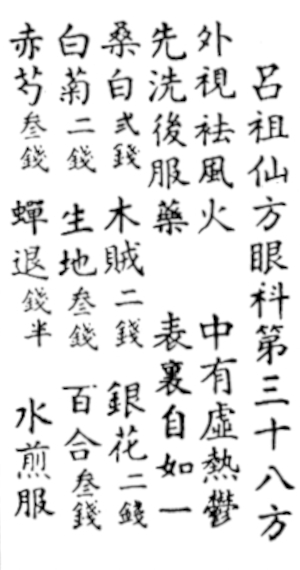 呂祖仙方眼科第三十八方
外視祛風火 中有虛熱鬱
先洗後服藥 表裏自如一
桑白弍錢 木賊二錢 銀花二錢
白菊二錢 生地叄錢 百合叄錢
赤芍叄錢 蟬退錢半 水煎服